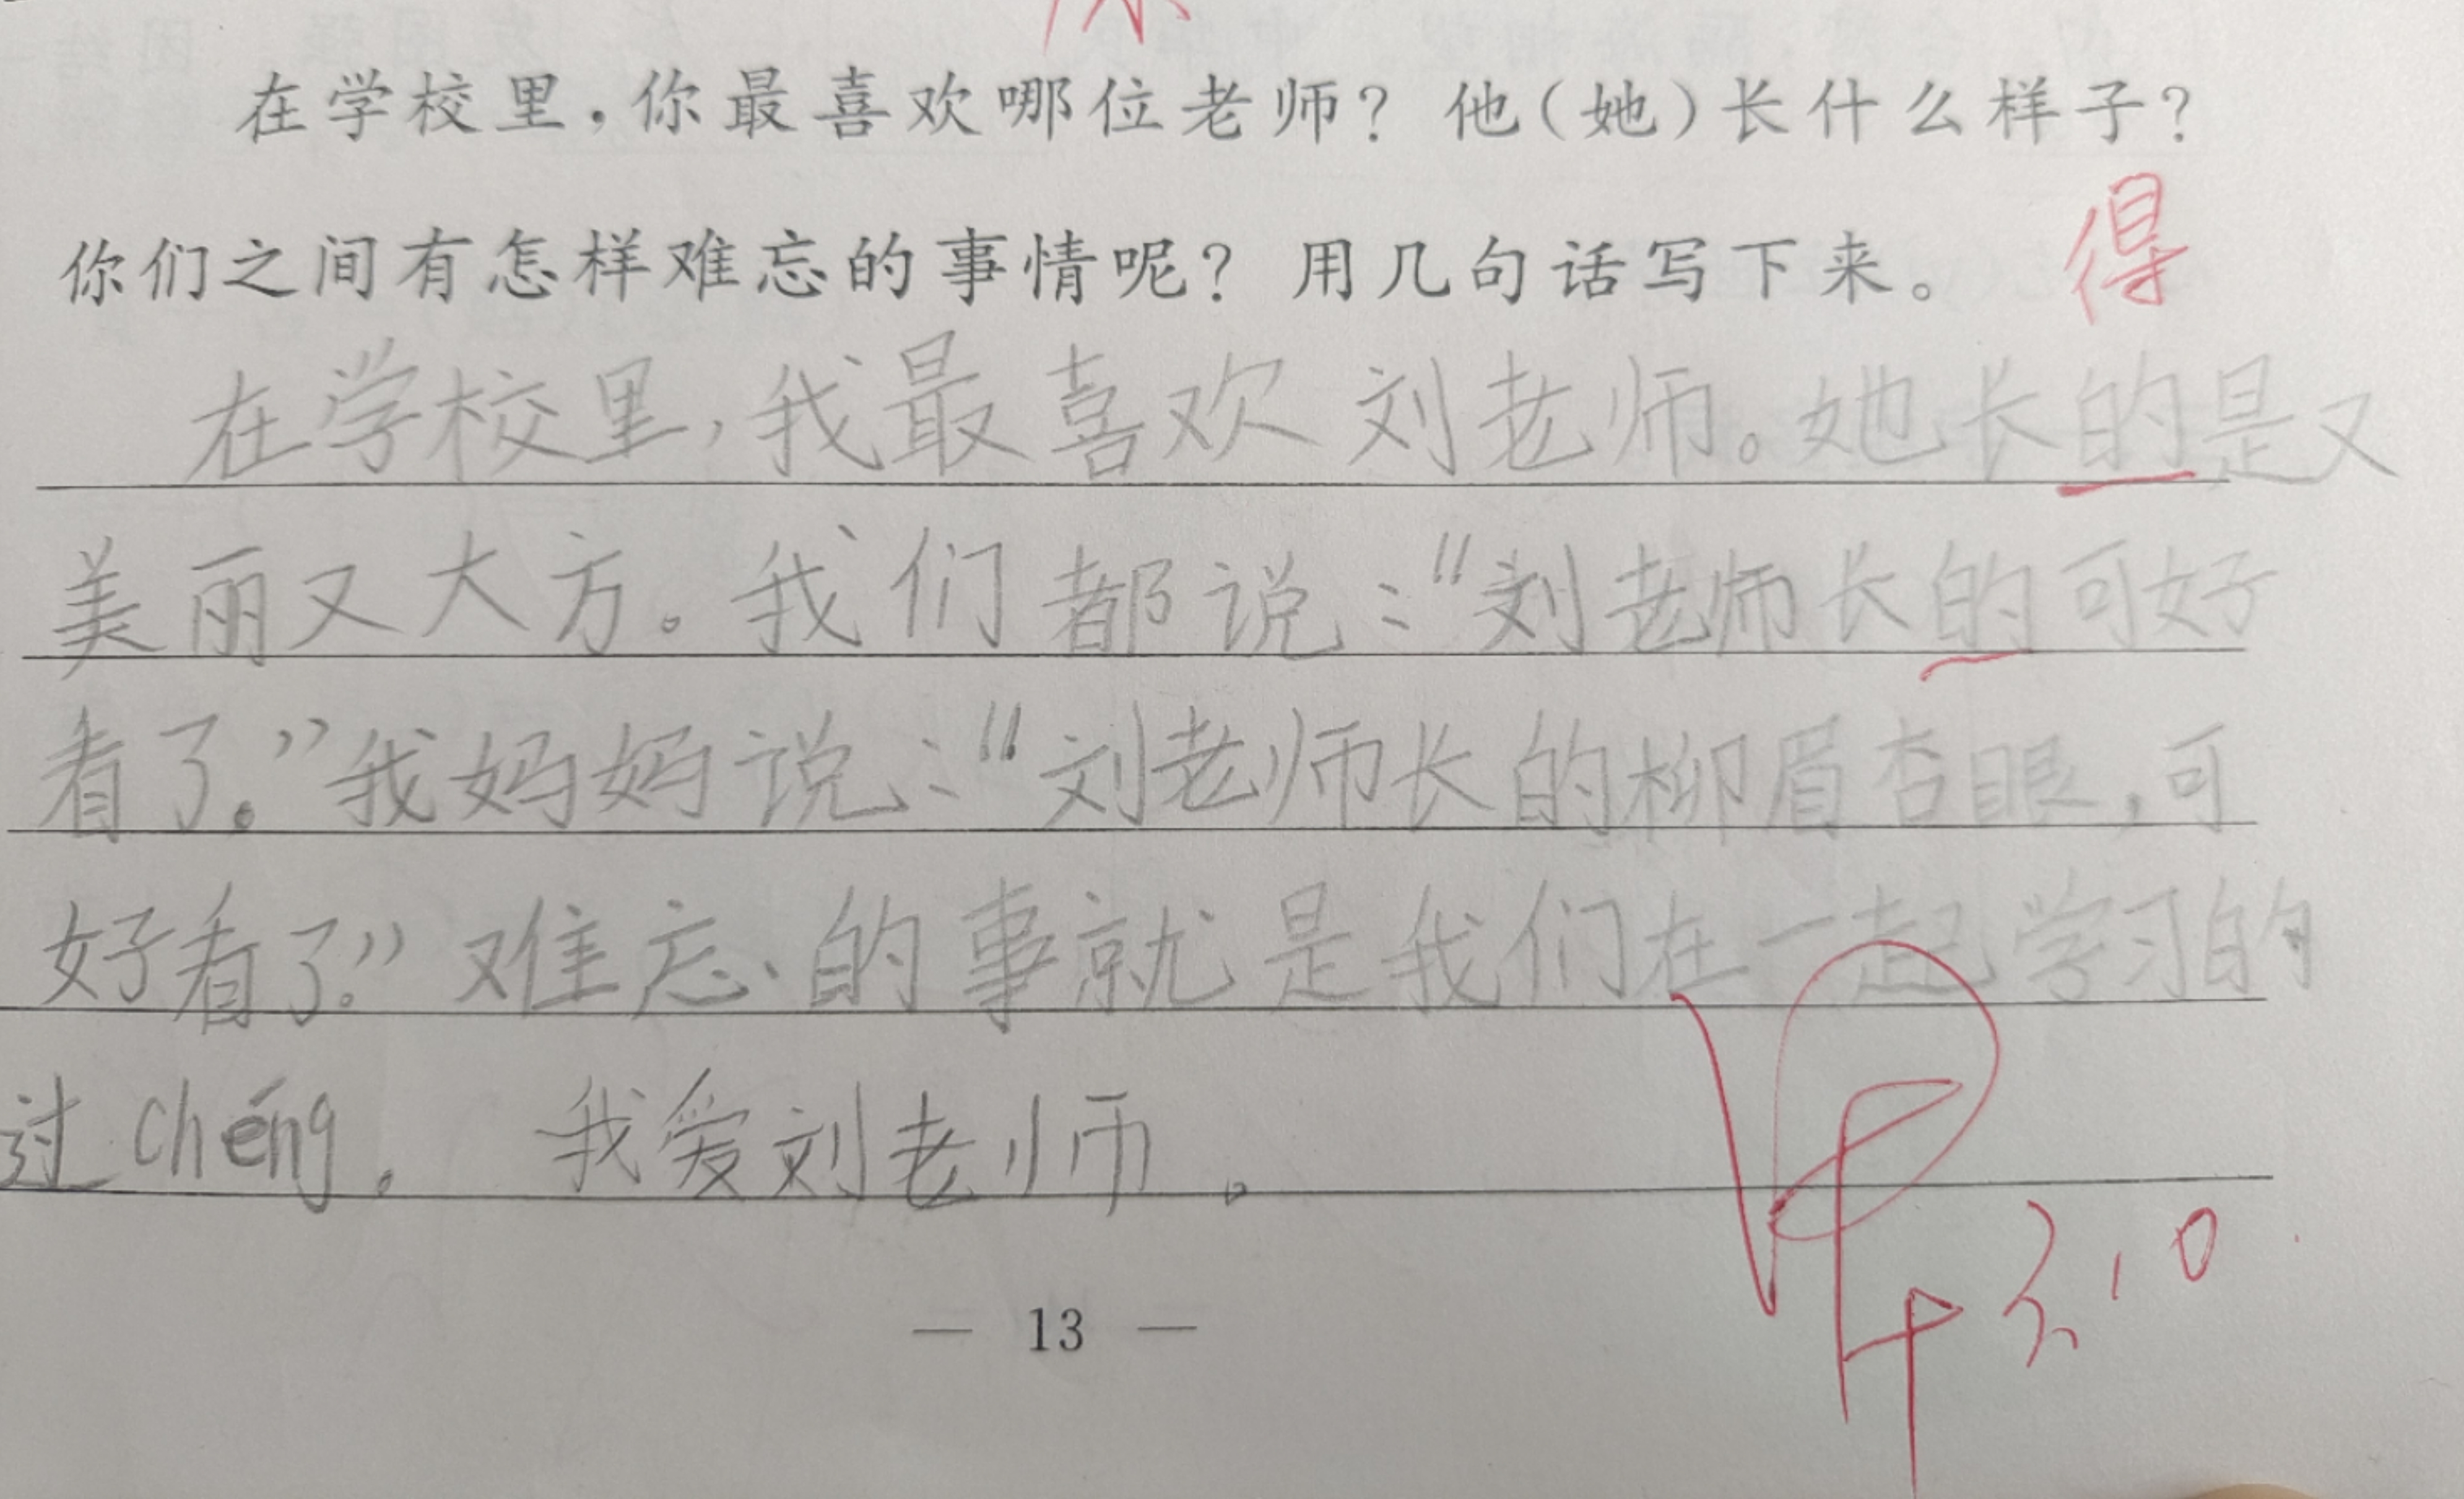 在学校里，你最喜欢哪位老师？他（她）长什么样子？
你们之间有怎样难忘的事情呢？用几句话写下来。
得
在学校里，我最喜欢刘老师。她长的是又
美丽又大方。我们都说：“刘老师长的可好
看了。”我妈妈说：“刘老师长的柳眉杏眼，可
好看了。”难忘的事就是我们在一起学习的
过chéng。 我爱刘老师。
— 13 —